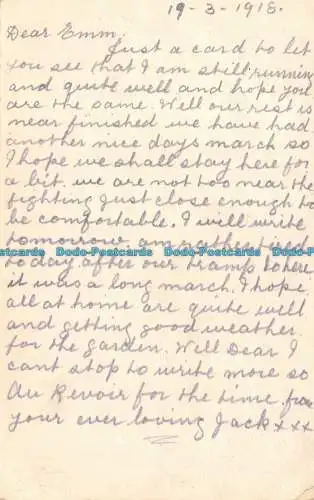 19-3-1918.
Dear Emm.
Just a card to let
you see that I am still running
and quite well and hope you
are the same. Well our rest is
near finished we have had
another nice days march so
I hope we shall stay here for
a bit. we are not too near the
fighting just close enough to
be comfortable. I will write
tomorrow. am rather tired
Postcards Dodo-Postcards Dodo-Postcards Dodo-Postcards
today after our tramp to here
it was a long march. I hope
all at home are quite well
and getting good weather.
for the garden. Well Dear I
cant stop to write more so
Au Revoir for the time from
your ever loving Jack xxx